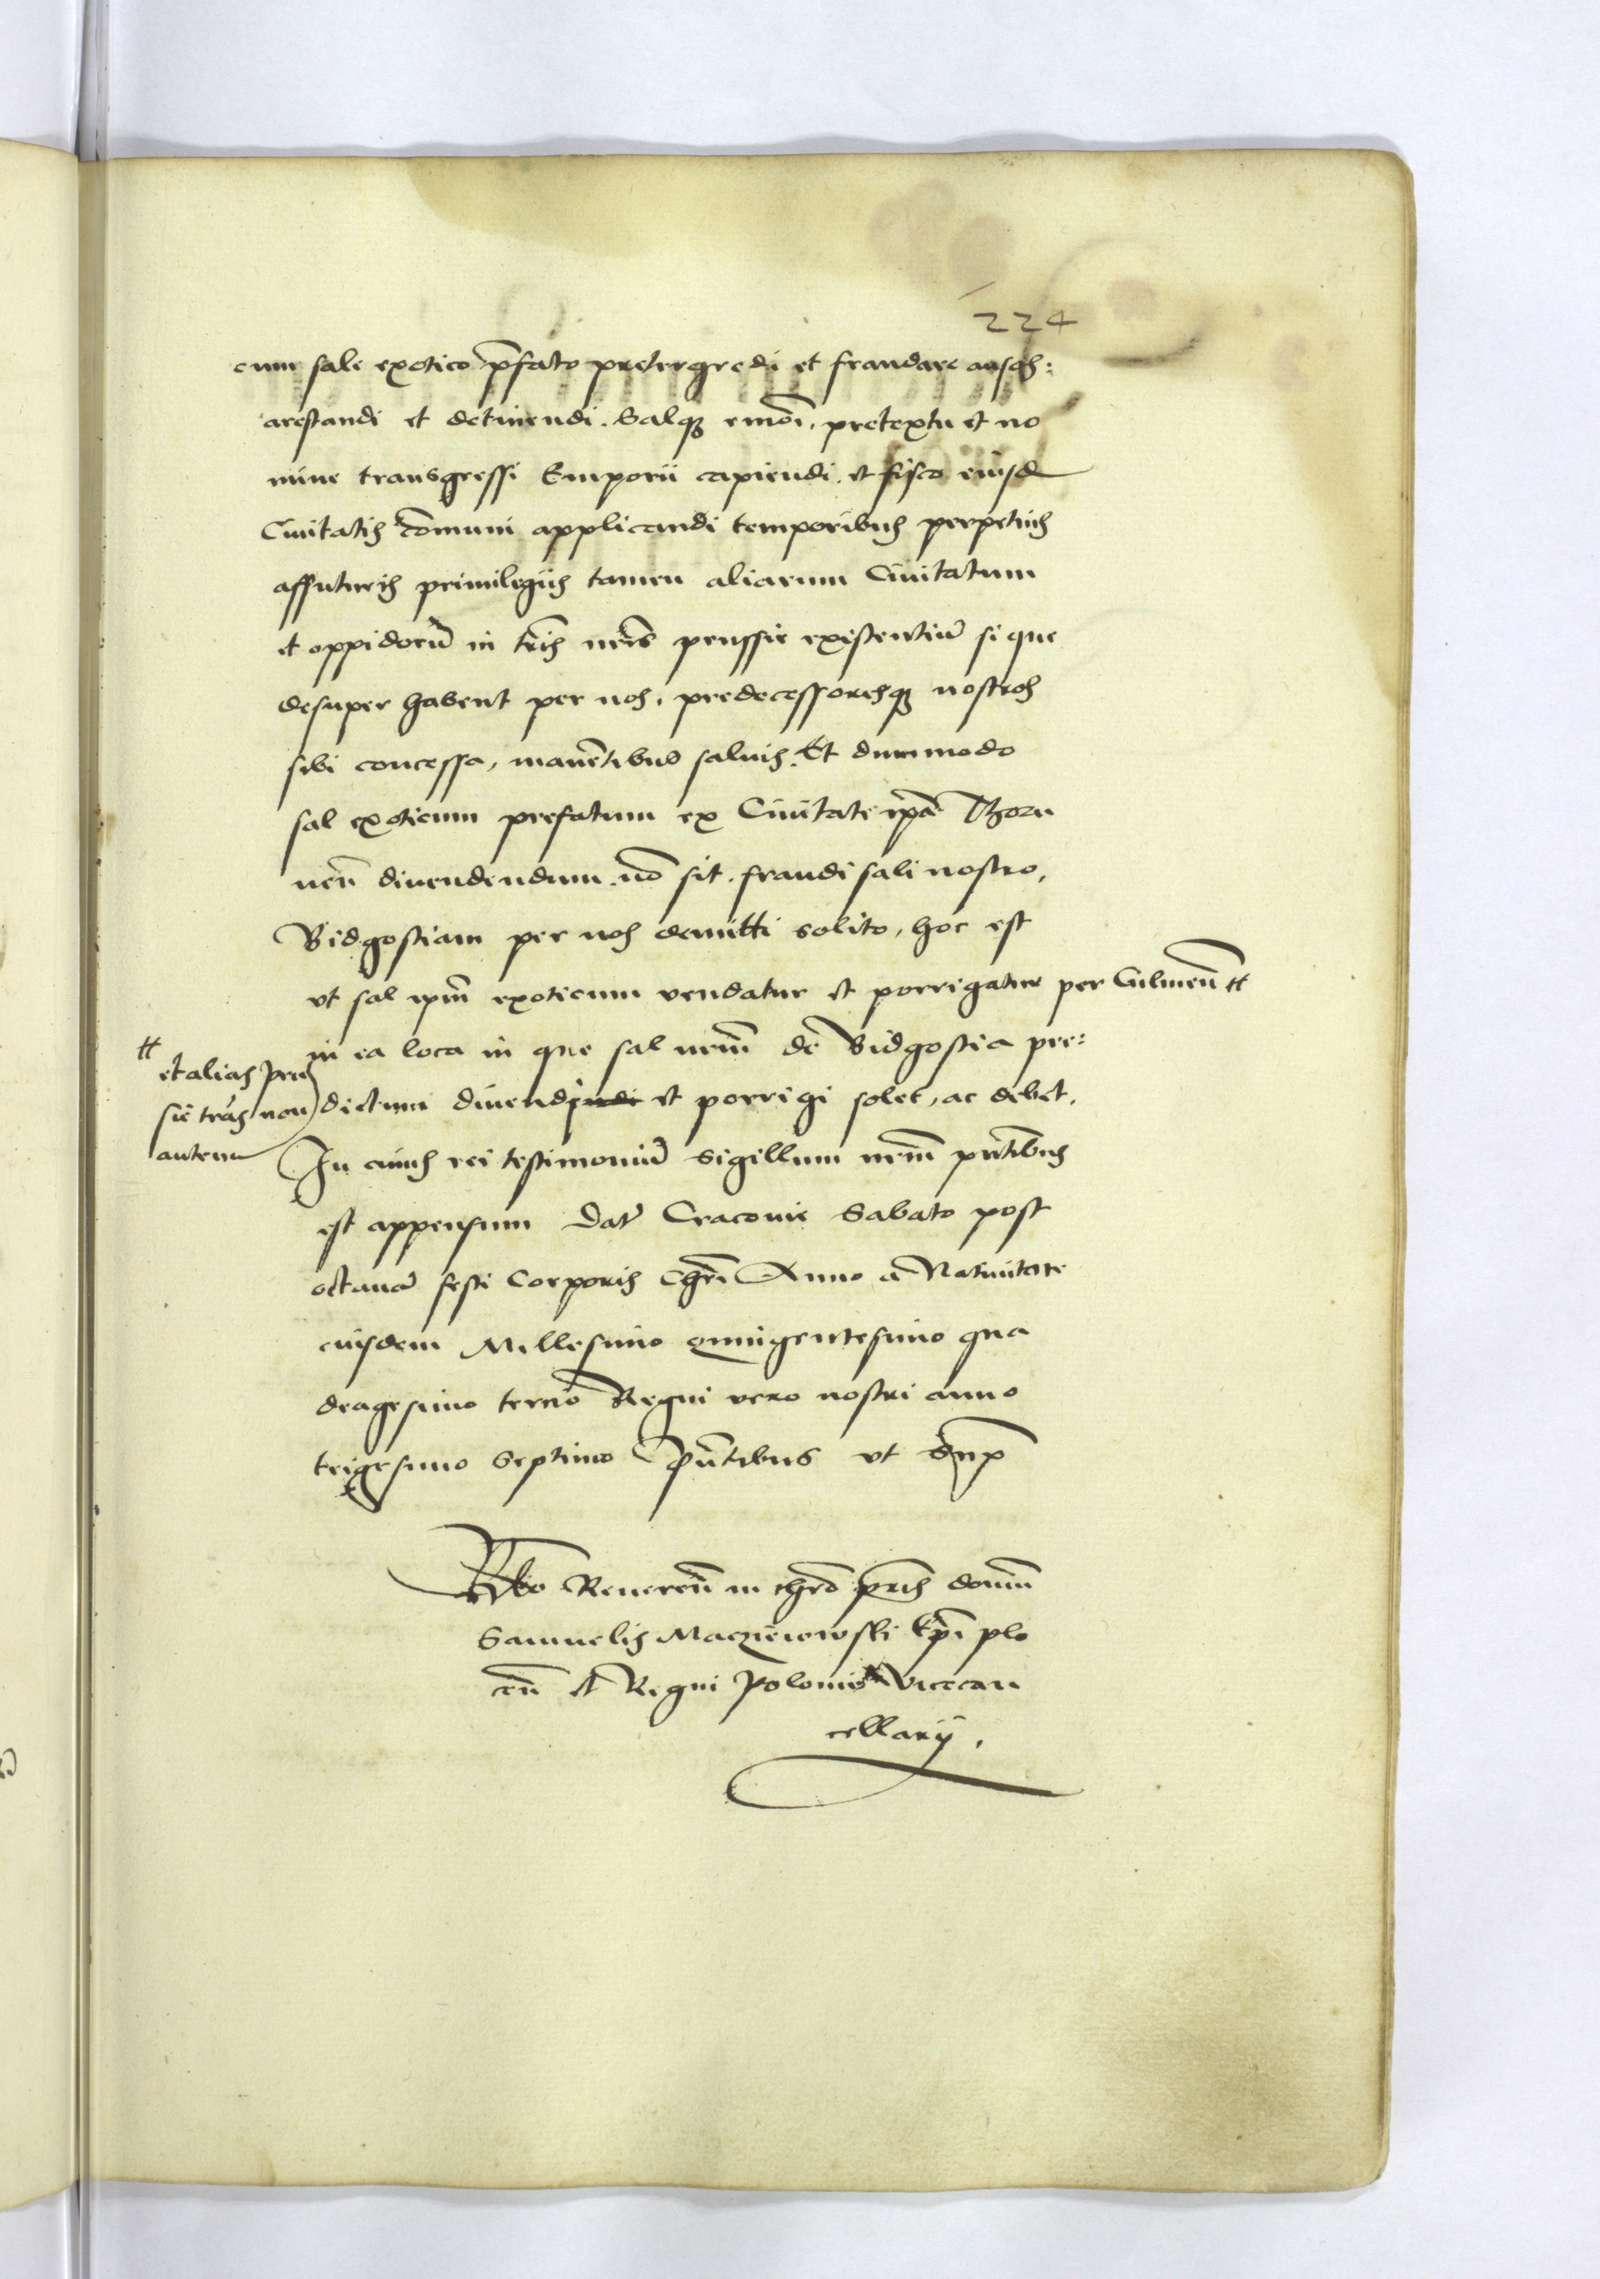 224
cum sale exotico p̄fato pretergredi et fraudare ausos:
arestandi et detinendi. Salq₃ eiusmōi, pretextu et no
mine transgressi Emporii capiendi, et fisco eiusd
Civitatis cōmuni applicandi temporibus perpetuis
affuturis privilegiis tamen aliarum Civitatum
et oppidorū in tr̄is nr̄is prussie existentiū si que
desuper habent per nos, predecessoresq₃ nostros
sibi concessa, manētibus salvis. Et dummodo
sal exoticum prefatum ex Civitate ip̄a Thoru
nen̄ divendendum nō sit fraudi sali nostro,
Bidgostiam per nos demitti solito, hoc est
ut sal ip̄m exoticum vendatur et porrigatur per Culmen̄ #
in ea loca in que sal nr̄m de Bidgostia pre:
# et alias Prus
sie tr̄as non
autem
dictum divendi et porrigi solet, ac debet.
In cuius rei testimoniū Sigillum nr̄m pn̄tibus
est appensum Dat̄ Cracovie Sabato post
octavā festi Corporis Chr̄i Anno a Nativitate
eiusdem Millesimo quingentesimo qua
dragesimo tercio Regni vero nostri anno
trigesimo Septimo Pn̄tibus ut Sup̄
R̄lo Reveren̄ in chr̄o pr̄is domini
Samuelis Maczieiowski Ep̄i plo
cen̄ et Regni Polonie Vicecan
cellarij.